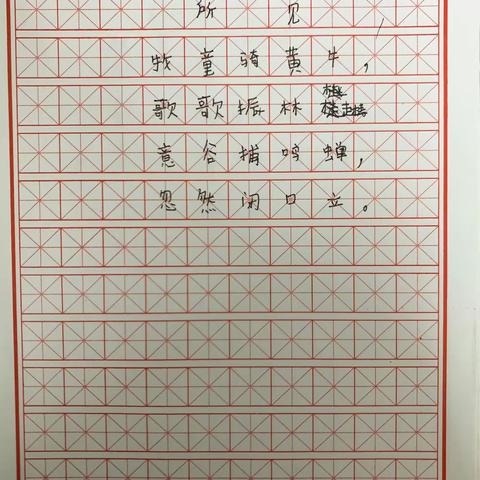 所见
牧童骑黄牛，
歌歌振林
意谷捕鸣蝉，
忽然闭口立。